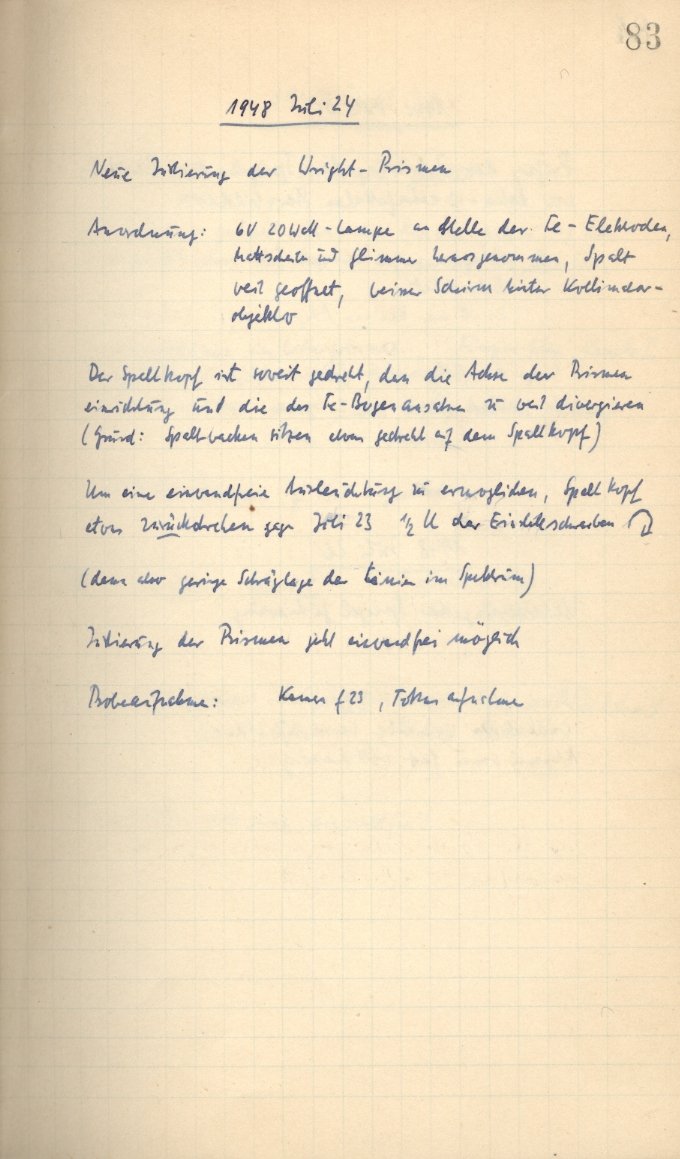 83
1948 Juli 24
Neue Justierung der Wright-Prismen
Anordnung: 6V 20Watt-Lampe an Stelle der Fe-Elektroden,
Mattscheibe und Glimmer herausgenommen, Spalt
weit geöffnet, weisser Schirm hinter Kollimator-
objektiv
Der Spaltkopf ist soweit gedreht, dass die Achse der Prismen
einrichtung und die des Fe-Bogenansatzes zu weit divergieren
(Grund: Spaltbacken sitzen etwas gedreht auf dem Spaltkopf)
Um eine einwandfreie Ausleuchtung zu ermöglichen, Spaltkopf
etwas zurückdrehen gegen Juli 23 ½ U der Einstellschrauben
(dann aber geringe Schräglage der Linien im Spektrum)
Justierung der Prismen jetzt einwandfrei möglich
Probeaufnahmen: Kamera f 23, Fokusaufnahme